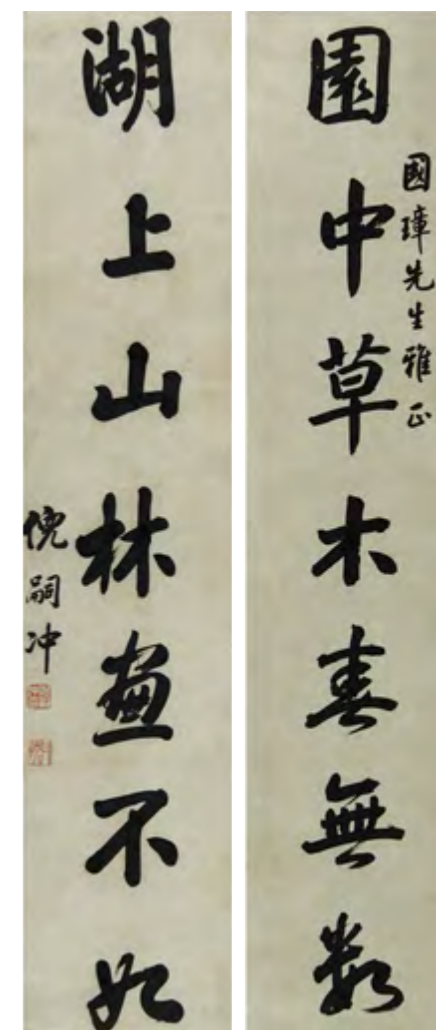 園中草木春無數
國璋先生雅正
湖上山林畫不如
倪嗣冲